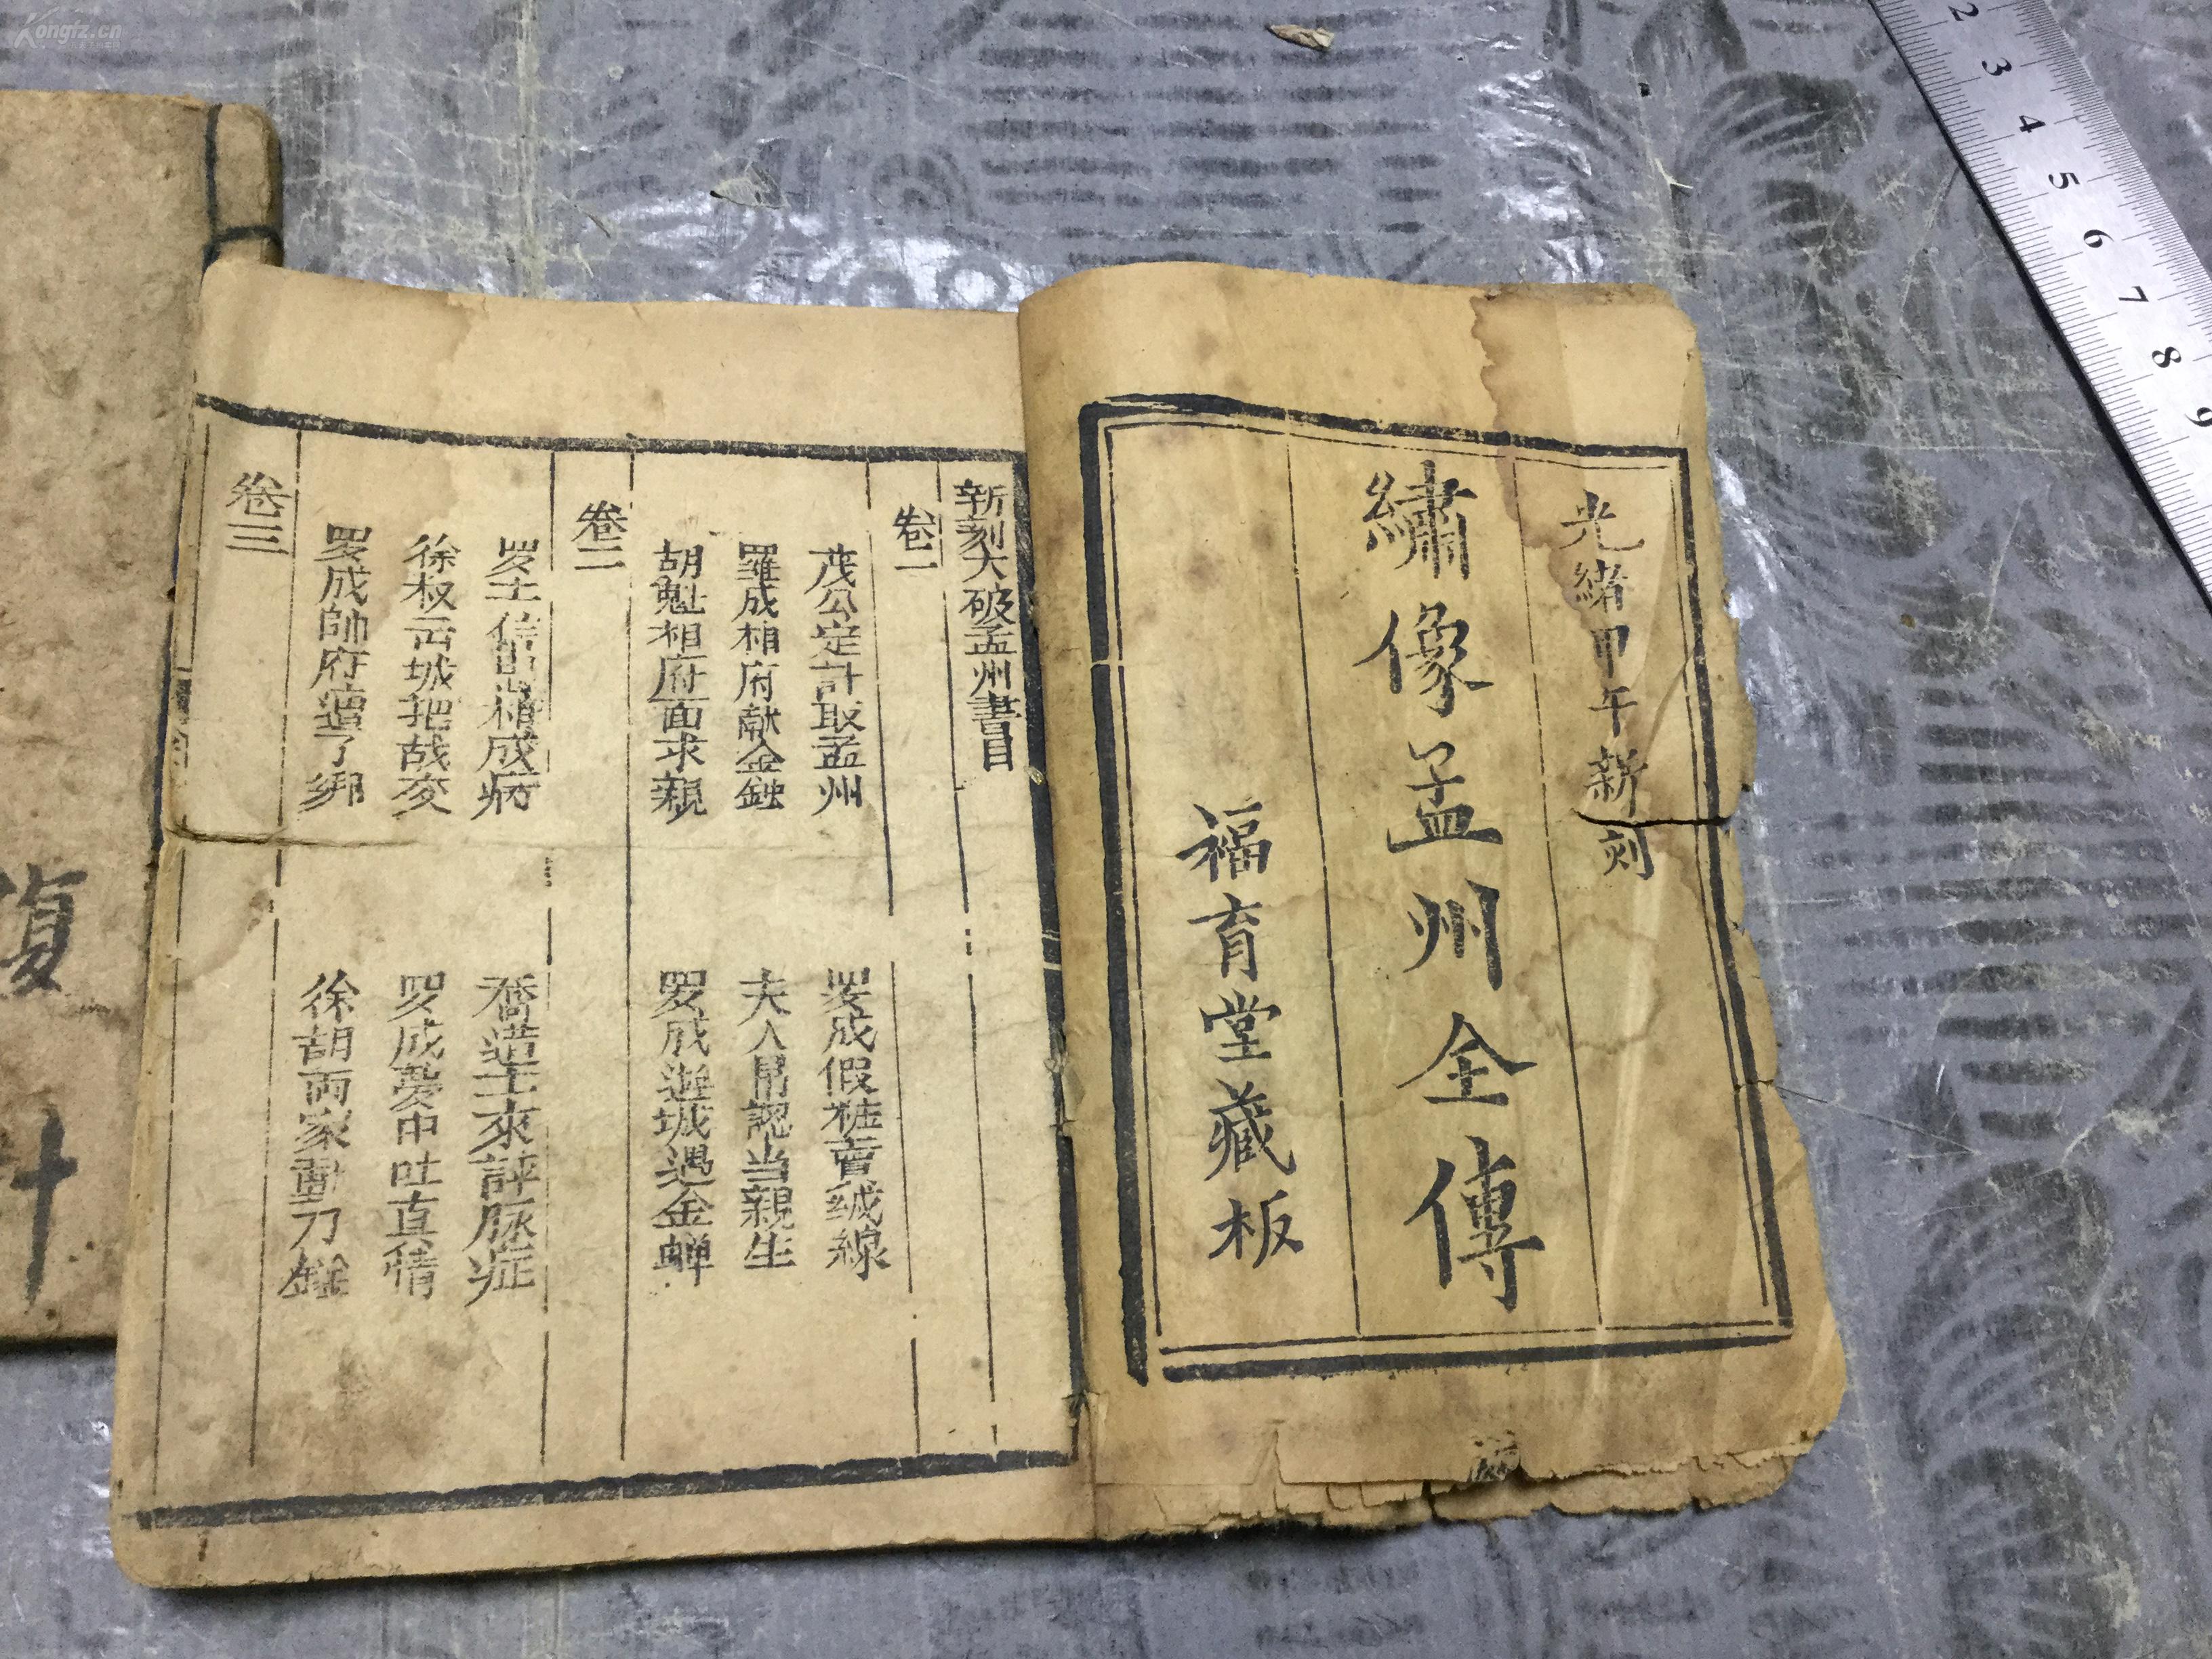 光緒甲午新刻
繡像孟州全傳
福育堂藏板
新刻大破孟州書目
卷一
茂公定計取孟州 罗成假粧賣絨線
羅成相府献金蝉 夫人錯認当親生
胡魁相府面求親 罗成遊城遇金蝉
卷二
罗士信 成病 喬道士來評脉症
徐叔云城把战交 罗成夢中吐真情
罗成帥府遭了綁 徐胡両家動刀鎗
卷三
復
2 3 4 5 6 7 8 9
Kongfz.cn